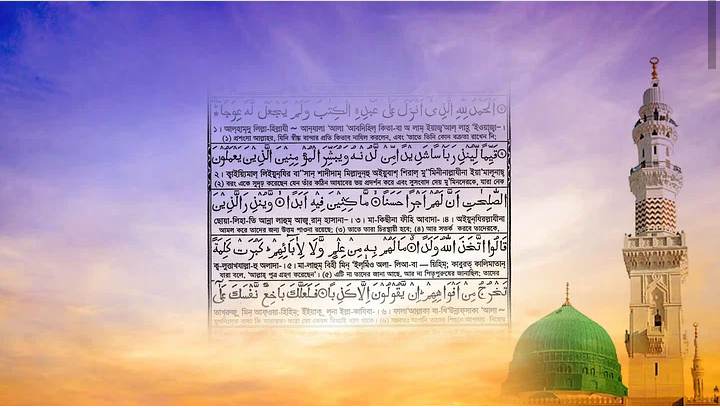 اَلْحَمْدُ لِلّٰهِ الَّذِيْۤ اَنْزَلَ عَلٰى عَبْدِهِ الْكِتٰبَ وَلَمْ يَجْعَلْ لَّهٗ عِوَجًا
১। আল্‌হাম্‌দু লিল্লা-হিল্লাযী ~ আন্‌যালা 'আলা 'আবদিহিল্‌ কিতা-বা অ লাম্‌ ইয়াজ্ব'আল্‌ লাহূ 'ইওয়াজ্বা-।
(১) প্রশংসা আল্লাহর, যিনি স্বীয় বান্দার প্রতি কিতাব নাযিল করলেন, এবং তাতে তিনি কোন বক্রতা রাখেন নি;
قَيِّمًا لِّيُنْذِرَ بَاْسًا شَدِيْدًا مِّنْ لَّدُنْهُ وَيُبَشِّرَ الْمُؤْمِنِيْنَ الَّذِيْنَ يَعْمَلُوْنَ
২। ক্বাইয়্যিমাল্‌ লিইয়ুনযিরা বা"সান্‌ শাদীদাম্‌ মিল্লাদুনহু অইয়ুবাশ্‌ শিরাল্‌ মু"মিনীনাল্লাযীনা ইয়া'মালূনাছ্‌
(২) বরং একে সুদৃঢ় করেছেন যেন তাঁর কঠিন আযাবের ভয় প্রদর্শন করে এবং সুসংবাদ দেয় মু'মিনদেরকে, যারা নেক
الصّٰلِحٰتِ اَنَّ لَهُمْ اَجْرًا حَسَنًا مَّاكِثِيْنَ فِيْهِ اَبَدًا وَّيُنْذِرَ الَّذِيْنَ
ছোয়া-লিহা-তি আন্না লাহুম্‌ আজ্ব্‌ রান্‌ হাসানা-। ৩। মা-কিছীনা ফীহি আবাদা-। ৪। অইয়ুনযিরাল্লাযীনা
আমল করে তাদের জন্য উত্তম পাওনা রয়েছে; (৩) তাতে তারা চিরস্থায়ী হবে; (৪) আর সতর্ক করবে তাদেরকে,
قَالُوا اتَّخَذَ اللّٰهُ وَلَدًا مَا لَهُمْ بِهٖ مِنْ عِلْمٍ وَّلَا لِاٰبَآئِهِمْ كَبُرَتْ كَلِمَةً
ক্ব-লুত্তাখাযাল্লা-হু অলাদা-। ৫। মা-লাহুম্‌ বিহী মিন্‌ 'ইল্‌মিওঁ অলা- লিআ-বা — য়িহিম্‌; কাবুরত্‌ কালিমাতান্‌
যারা বলে, 'আল্লাহ্‌ পুত্র গ্রহণ করেছেন'। (৫) এটি না তাদের জানা আছে, আর না পিতৃপুরুষের জানাছিল; তাদের
تَخْرُجُ مِنْ اَفْوَاهِهِمْ اِنْ يَّقُوْلُوْنَ اِلَّا كَذِبًا فَلَعَلَّكَ بَاخِعٌ نَّفْسَكَ عَلٰۤى
তাখরুজু মিন্‌ আফ্‌ওয়া-হিহিম্‌; ইঁইয়াকূ লূনা ইল্লা-কাযিবা-। ৬। ফালা'আল্লাকা বা-খি'উন্নাফ্‌সাকা 'আলা ~